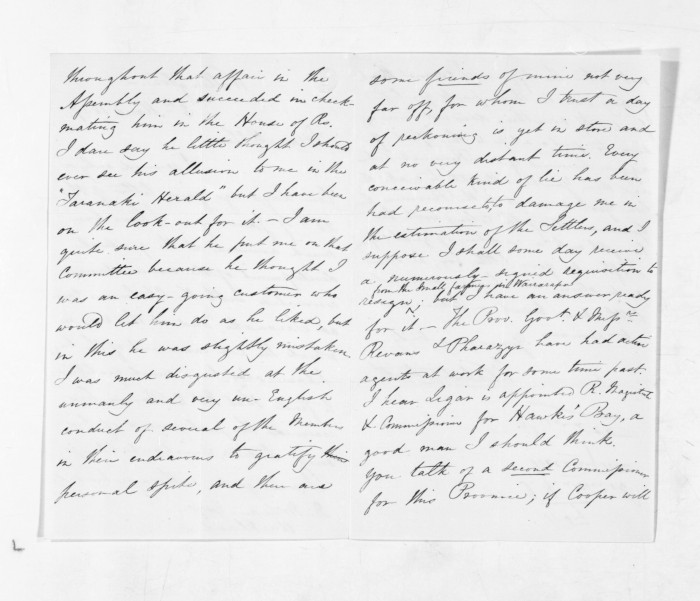 throughout that affair in the
Assembly and succeeded in check-
mating him in the House of Rs.
I dare say he little thought I should
ever see his allusion to me in the
"Taranaki Herald" but I have been
on the look-out for it. – I am
quite sure that he put me on that
Committee because he thought I
was an easy-going customer who
would let him do as he liked, but
in this he was slightly mistaken.
I was much disgusted at the
unmanly and very un-English
conduct of several of the Members
in their endeavours to gratify their
personal spite, and there are
some friends of mine not very
far off, for whom I trust a day
of reckoning is yet in store and
at no very distant time. Every
conceivable kind of lie has been
had recourse to, to damage me in
the estimation of the Settlers, and I
suppose I shall some day receive
a numerously-signed requisition to
from the Small farming Wairarapa
resign; but I have an answer ready
for it. – The Prov. Govt. & Messrs
Revans & Pharazyn have had active
agents at work for some time past.
I hear Ligar is appointed R. Magistrate
& Commissioner for Hawke's Bay, a
good man I should think.
You talk of a second Commissioner
for this Province; if Cooper will